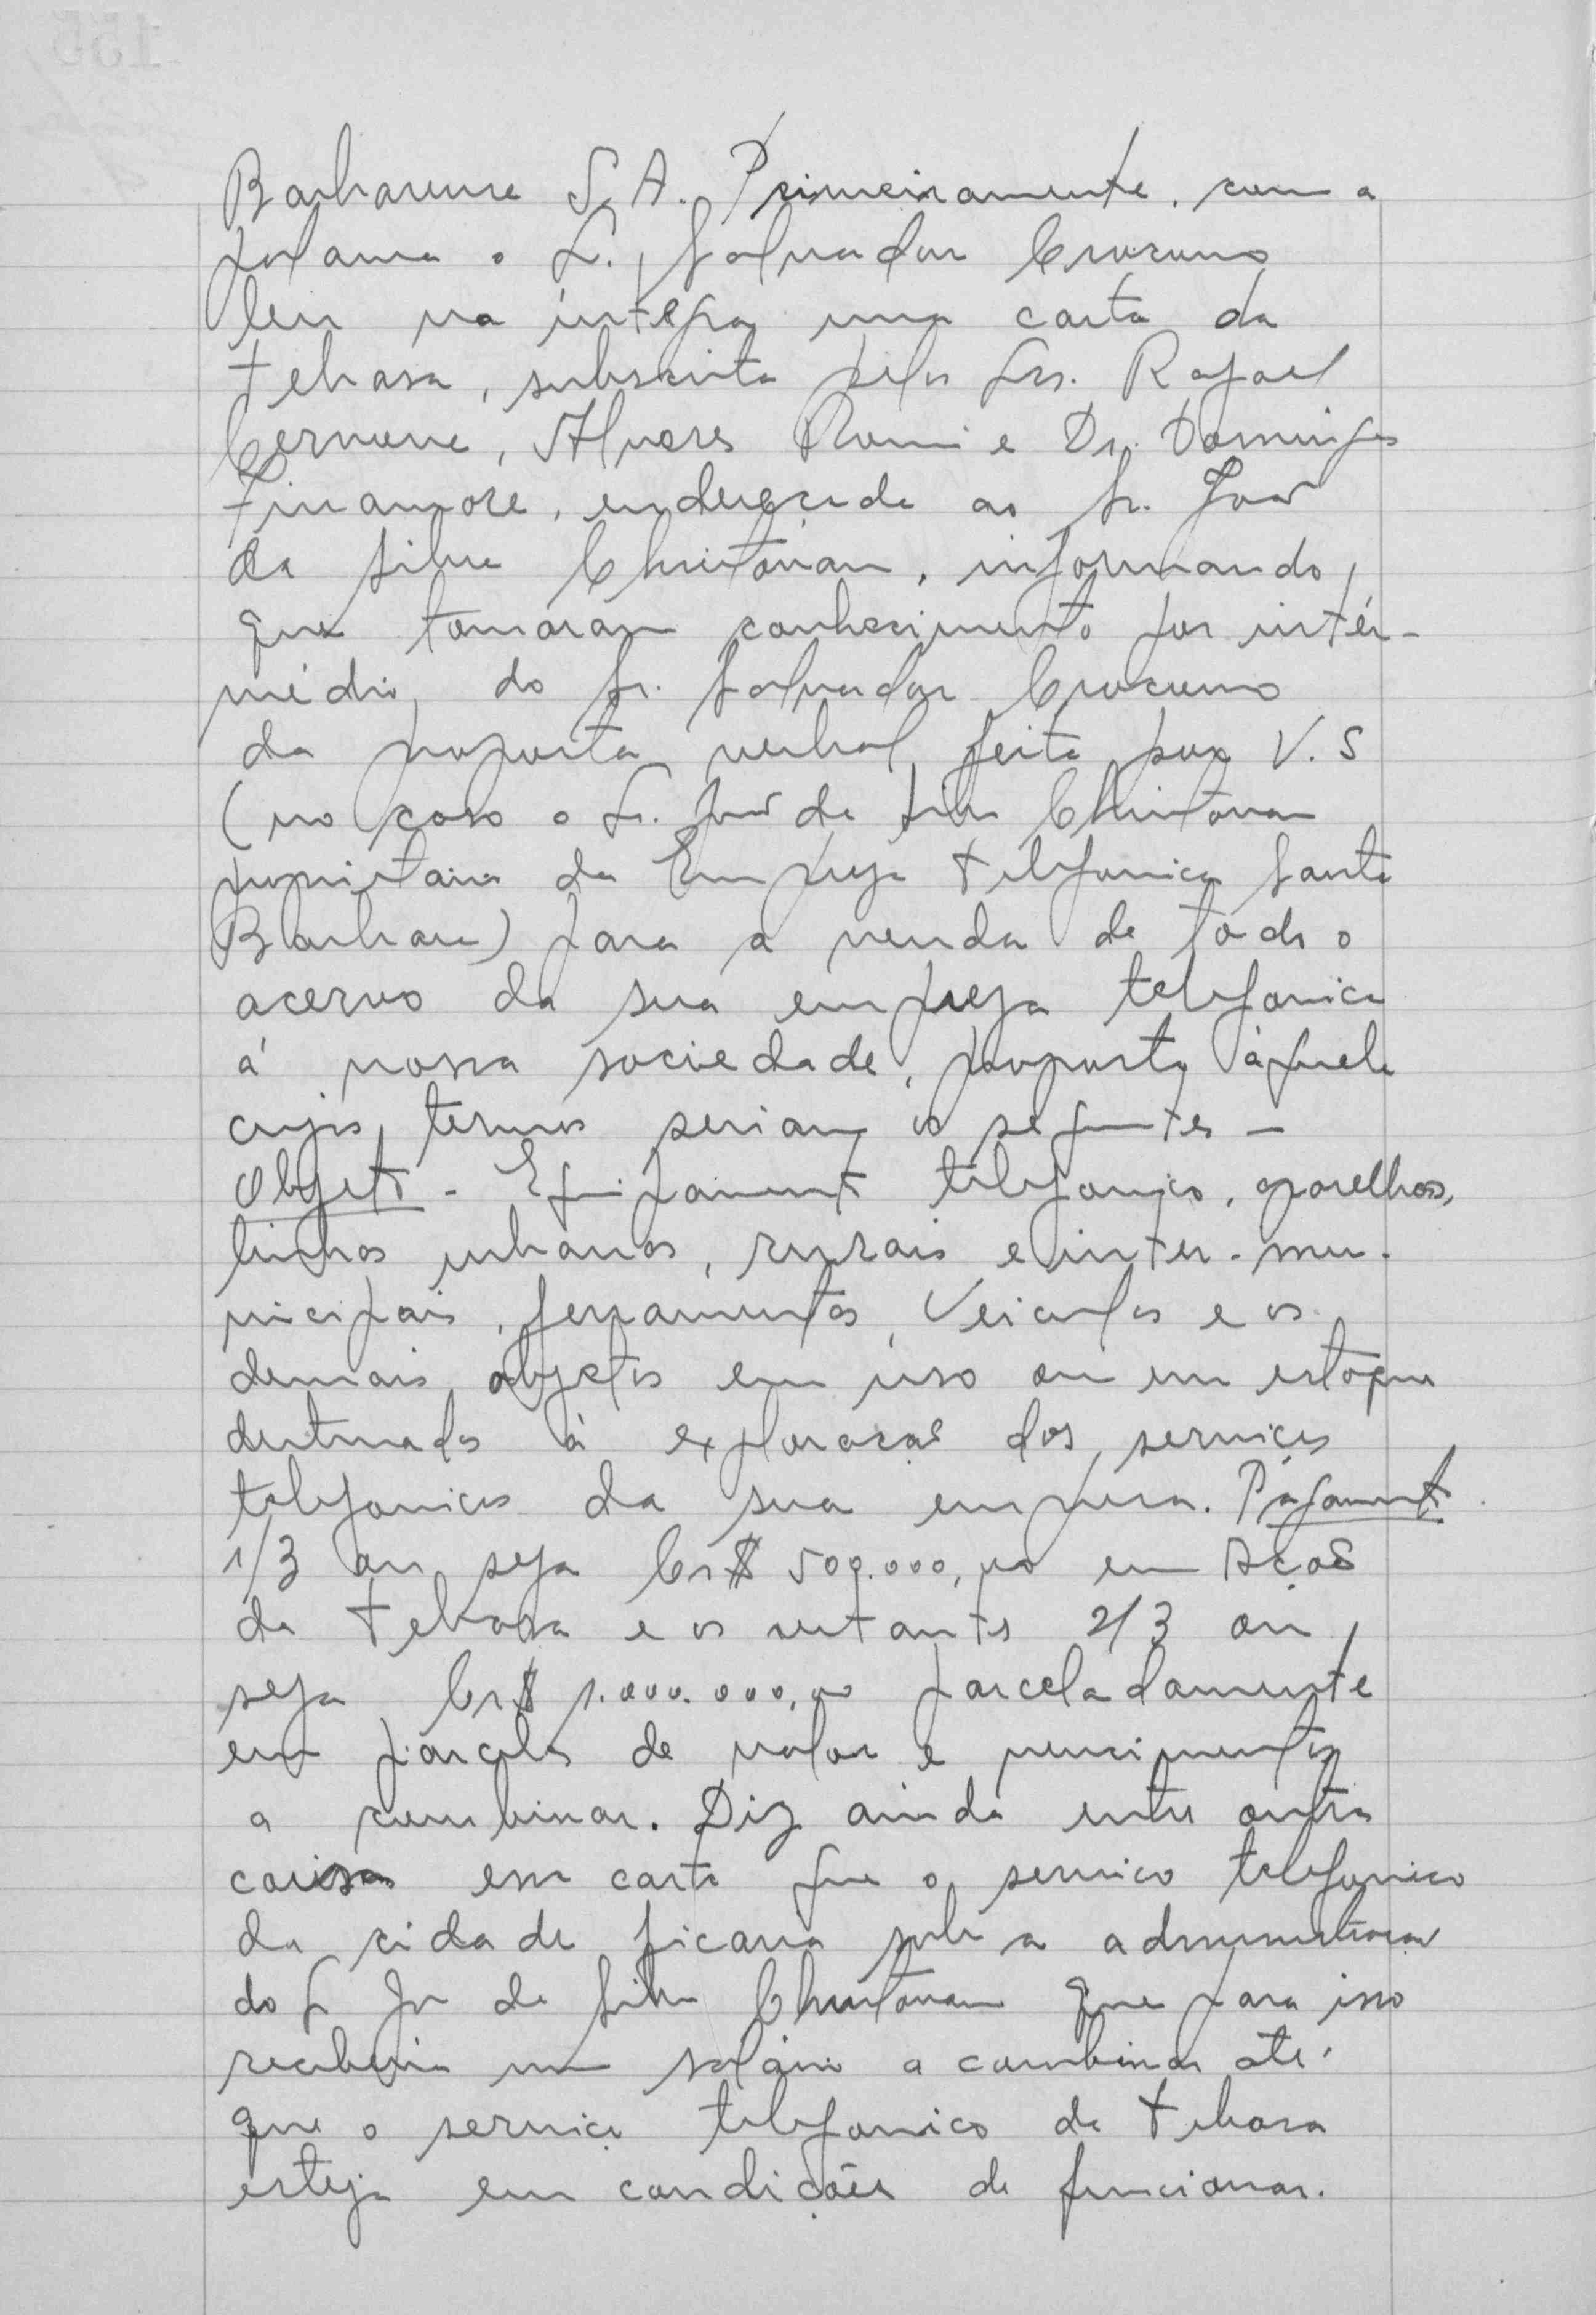 Barbarense S.A. Primeiramente, com a
palavra o Sr. Salvador Crozumo
leu na íntegra uma carta da
Tebasa, subscrita pelos Srs. Rafael
Cervone, Alvares Romi e Dr. Domingos
Finamore, endereçada ao Sr. José
da Silva Chritovam, informando,
que tomaram conhecimento por intér-
médio, do Sr. Salvador Crozumo
da proposta verbal, feita por V.S
(no caso o Sr. José da Silva Chritovam
proprietario da Empreza Telefonica Santa
Barbara) para a venda de todo o
acervo da sua empreza telefonica
á nossa sociedade, proposta aquela
cujos termos seriam os seguintes -
Objeto - Equipamento telefonico, aparelhos,
linhas urbanas, rurais e inter-mu-
nicipais, ferramentas, Veiculos e os
demais objetos em uso ou em estoque
destinados á exploração dos serviços
telefonicos da sua empresa. Pagamento
1/3 ou seja Cr$ 500.000,00 em Ações
da Tebasa e os restantes 2/3 ou,
seja Cr$ 1.000.000,00 parceladamente
em parcelas de valor e vencimentos
a combinar. Diz ainda entre outras
coisas essa carta que o serviço telefonico
da cidade ficaria sob a administração
do Sr José da Silva Chritovam que para isso
receberia um salário a combinar até
que o serviço telefonico da Tebasa
esteja em condições de funcionar.
155